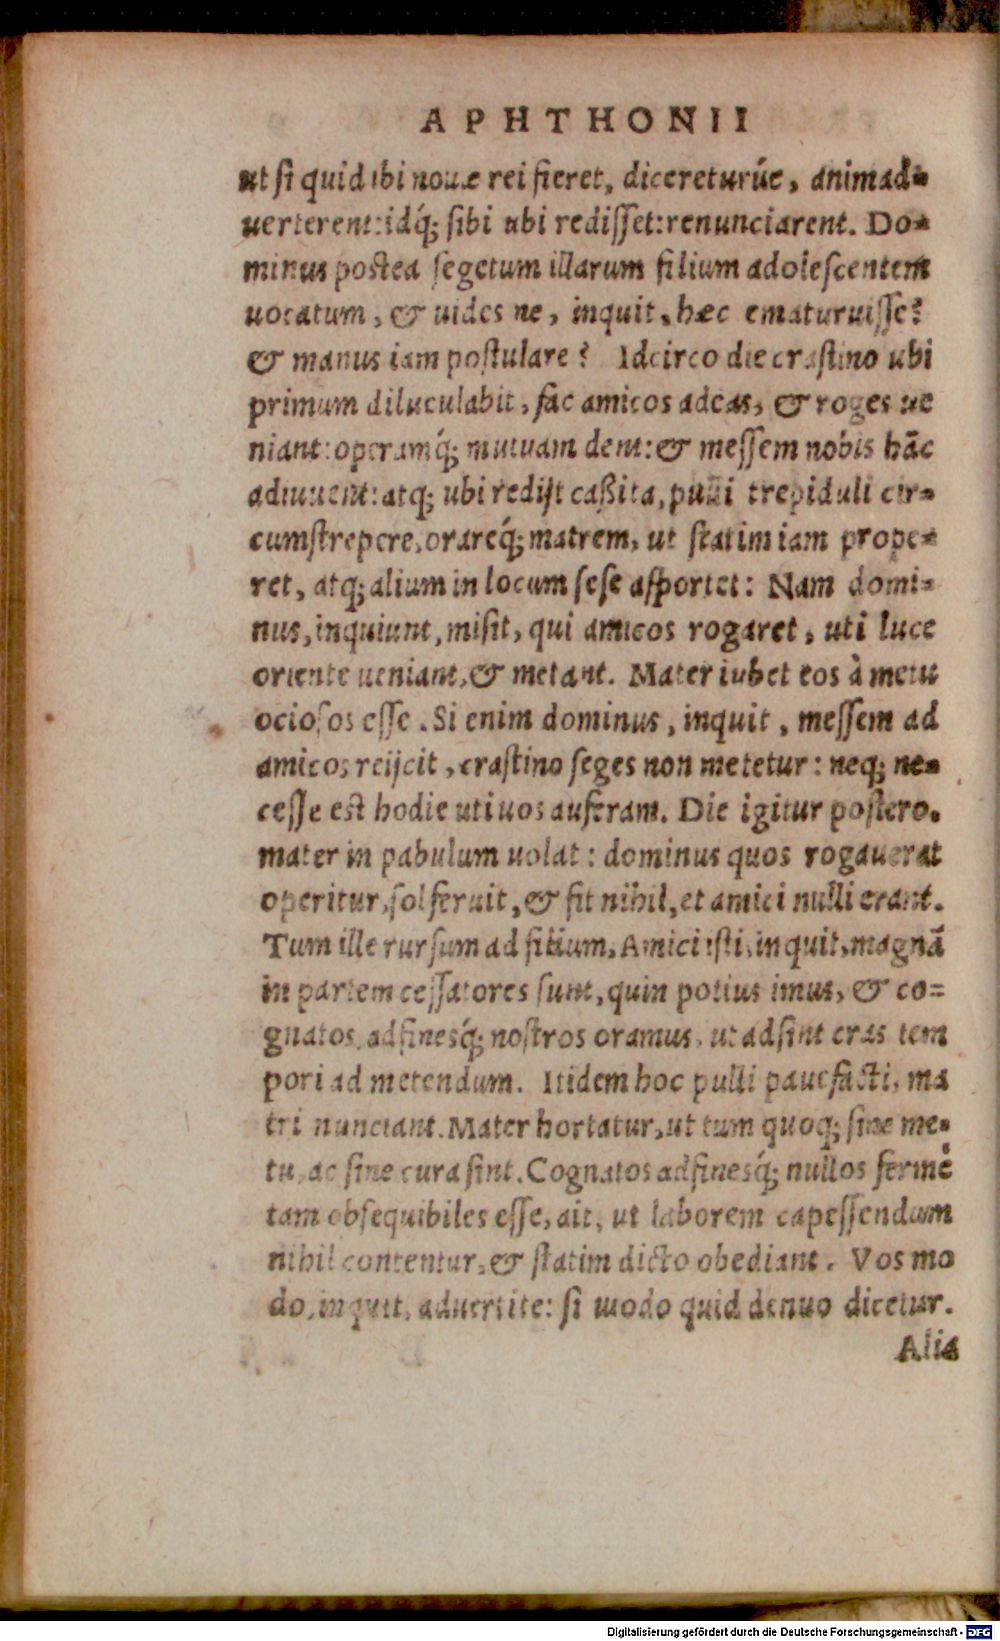 APHTHONII
ut si quid ibi nouæ rei fieret, diceretur úe, animad-
uerterent: idq́; sibi ubi redisset: renunciarent. Do-
minus postea segetum illarum filium adolescentem
uocatum, & uides ne, inquit, hæc ematuruisse?
& manus iam postulare? Idcirco die crastino ubi
primum diluculabit, fac amicos adeas, & roges ue
niant: operamq́; mutuam dent: & messem nobis hāc
adiuuent: atq; ubi redijt caßita, pulli trepiduli cir-
cumstrepere, orareq́; matrem, ut statim iam prope-
ret, atq; alium in locum sese asportet: Nam domi-
nus, inquiunt, misit, qui amicos rogaret, uti luce
oriente ueniant, & metant. Mater iubet eos à metu
ociosos esse. Si enim dominus, inquit, messem ad
amicos reijcit, crastino seges non metetur: neq; ne-
cesse est hodie uti uos auferam. Die igitur postero.
mater in pabulum uolat: dominus quos rogauerat
operitur, sol feruit, & fit nihil, et amici nulli erant.
Tum ille rursum ad filium, Amici isti, inquit, magnā
in partem cessatores sunt, quin potius imus, & co-
gnatos, adfinesq́; nostros oramus, ut adsint cras tem
pori ad metendum. Itidem hoc pulli pauefacti, ma
tri nunciant. Mater hortatur, ut tum quoq; sine me-
tu, ac sine cura sint. Cognatos adfinesq́; nullos fermè
tam obsequibiles esse, ait, ut laborem capessendum
nihil contentur, & statim dicto obediant. Vos mo
do, inquit, aduertite: si modo quid denuo dicetur.
Alia
Digitalisierung gefördert durch die Deutsche Forschungsgemeinschaft - DFG